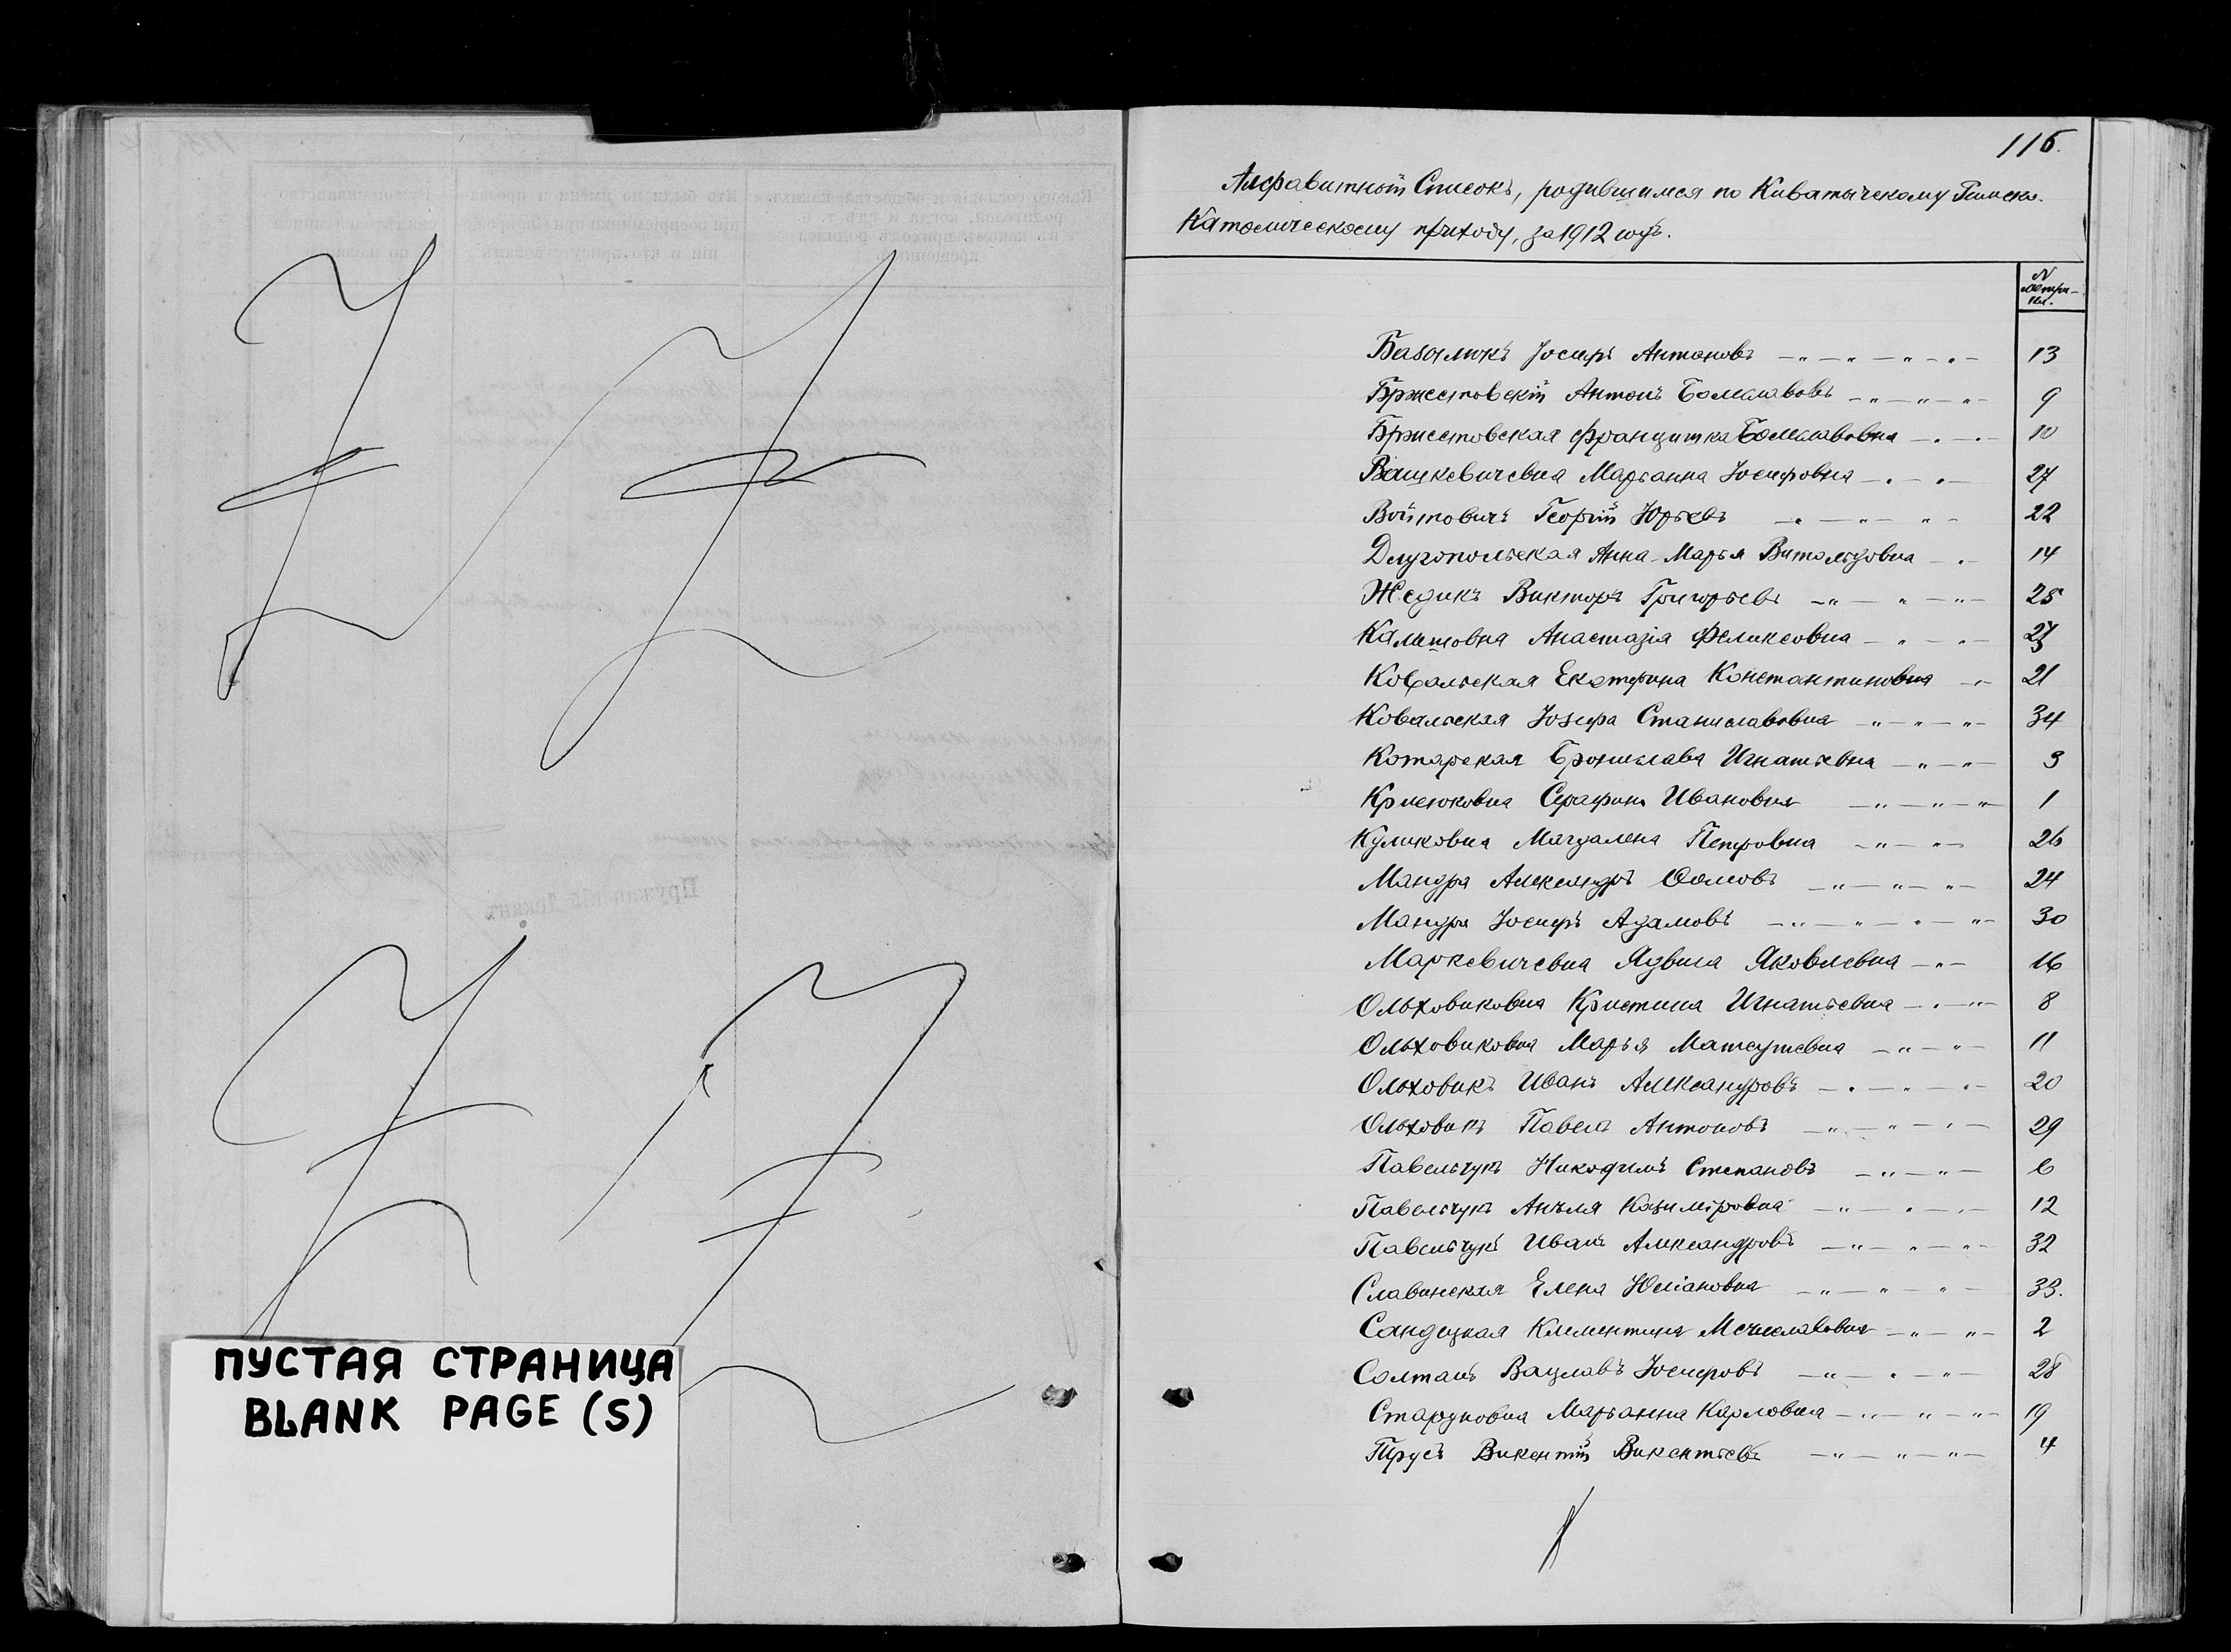 ПУСТАЯ СТРАНИЦА
BLANK PAGE (S)
116.
Алфавитный Списокъ, родившимся по Киватычскому Римско-
Католическому приходу, за 1912 годъ.
N
метри-
ки.
Базылюкъ Іосифъ Антоновъ 13
Бржестовскій Антонъ Болеславовъ 9
Бржестовская Францишка Болеславовна 10
Вашкевичевна Марьянна Іосифовна 27
Войтовичъ Георгій Юрьевъ 22
Длугопольская Анна-Марья Витольдовна 14
Жедикъ Викторъ Григорьевъ 25
Калишовна Анастазія Феликсовна
Ковальская Екатерина Константиновна 21
Ковальская Іозефа Станиславовна 34
Котарская Бронислава Игнатьевна 3
Серафина Ивановна 1
Куликовна Магдалена Петровна 26
Мандра Александръ 24
Мандра Іосифъ Адамовъ 30
Маркевичевна Ядвига Яковлевна 16
Ольховиковна Кристина Игнатьевна 8
Ольховиковна Марья Матеушевна 11
Ольховикъ Иванъ Александровъ 20
Ольховикъ Павелъ Антоновъ 29
Павельчукъ Никодимъ Степановъ 6
Павельчукъ Анеля Казиміровна 12
Павельчукъ Иванъ Александровъ 32
Славинская Елена Юліановна 33.
Сандецкая Клементина Мечиславовна 2
Солтанъ Вацлавъ Іосифовъ 28
Старуновна Марьянна Карловна 19
Трусъ Викентій Викентьевъ 4